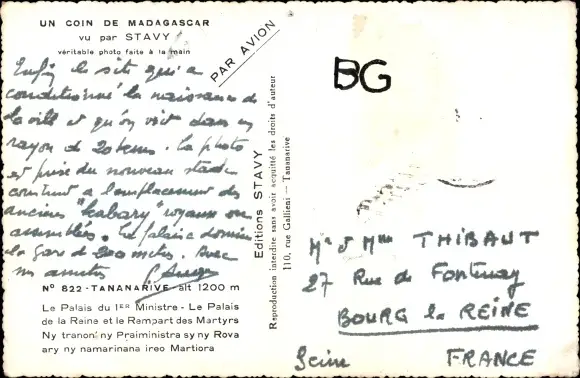 UN COIN DE MADAGASCAR
vu par STAVY
véritable photo faite à la main
PAR AVION
BG
Enfin le site qui a
conditionné la naissance de
la ville et qu'on voit dans un
rayon de 20 kms. La photo
est prise du nouveau stade
construit à l'emplacement des
anciens "kabary" royaux ou
assemblées. Le palais domine
la gare de 200 mètres. Avec
nos amitiés
Nº 822 - TANANARIVE alt 1200 m
Le Palais du 1ER Ministre - Le Palais
de la Reine et le Rempart des Martyrs
Ny tranon'ny Praiministra sy ny Rova
ary ny namarinana ireo Martiora
Editions STAVY
Reproduction interdite sans avoir acquitté les droits d'auteur
110, rue Gallieni — Tananarive
Mr et Mme THIBAUT
27 Rue de Fontenay
BOURG la REINE
Seine FRANCE